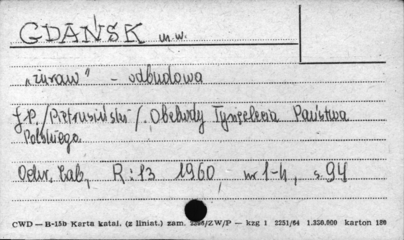 GDAŃSK m.w.
„żuraw" - odbudowa
J.P. /Pietrusiński/. Obchody Tysiąclecia Państwa
Polskiego
Ochr. Zab, R: 13 1960, nr 1-4, s. 94
CWD — B-15b Karta katal. (z liniat.) zam. /ZW/P — kzg 1 2251/64 1.350.000 karton 180